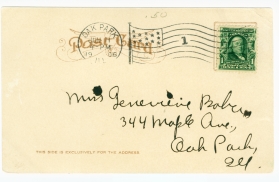 .50
OAK PARK
Post Card
1
Miss Genevieve Baker
344 Maple Ave,
Oak Park,
Ill.
THIS SIDE IS EXCLUSIVELY FOR THE ADDRESS